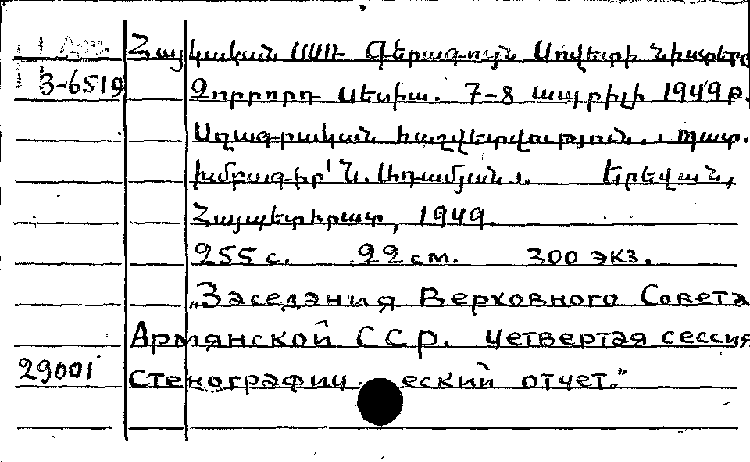 Հայկական ՍՍՌ Գերագույն Սովետի նիստերը
3-6519 Չորրորդ սեսիա. 7-8 ապրիլի 1949թ.
Սղագրական հաշվետվություն. պատ.
խմբագիր՝ Ն. Երևան,
Հայպետհրատ, 1949.
255 с. 22 см. 300 экз.
„Заседания Верховного Совета
Армянской ССР. Четвертая сессия
29001 Стенографический отчет.”